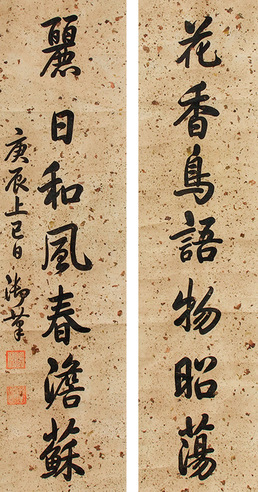 花香鳥語物昭蕩
麗日和風春澹蘇
庚辰上巳日御筆